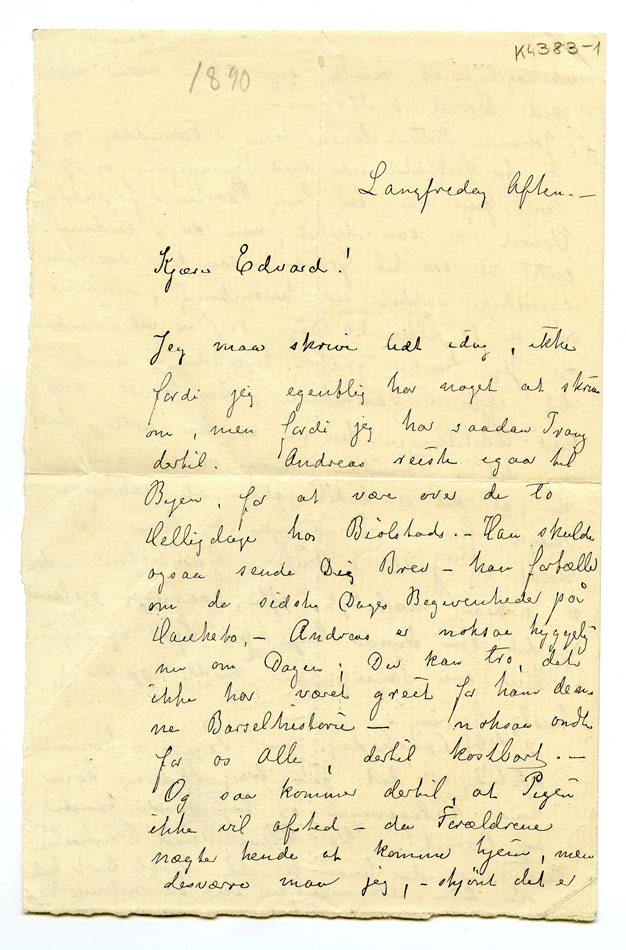 K4383-1
1890
Langfredag Aften. –
Kjære Edvard!
Jeg maa skrive lidt idag, ikke
fordi jeg egentlig har noget at skrive
om, men fordi jeg har saadan Trang
dertil. Andreas reiste igaar til
Byen, for at være over de to
Helligdage hos Bjølstads. – Han skulde
ogsaa sende Dig Brev – han fortæller
om de sidste Dages Begivenheder på
Hauketo. – Andreas er noksaa hyggelig
nu om Dagen; Du kan tro, det
ikke har været greit for ham den-
ne Barselhistorie – noksaa ondt
for os Alle, dertil kostbart. –
Og saa kommer dertil, at Pigen
ikke vil afsted – da Forældrene
nægter hende at komme hjem, men
desværre maa jeg, – skjönt det er